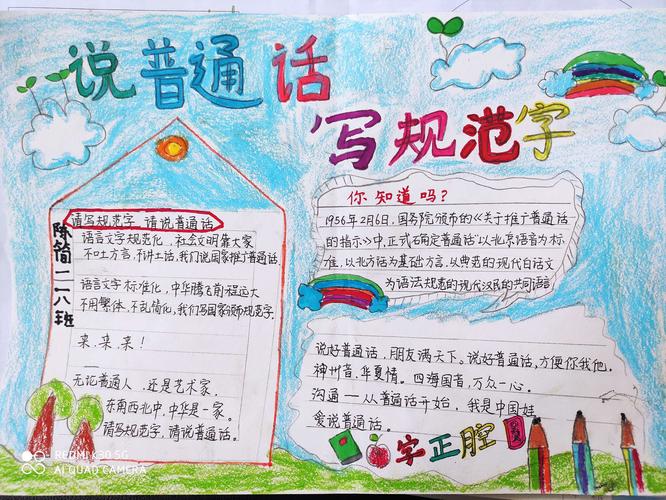 说普通话
写规范字
陈简一二八班
请写规范字 请说普通话
语言文字规范化,社会文明靠大家
不吐方言,不讲土话,我们说国家推广普通话
语言文字标准化,中华腾飞前程远大
不用繁体,不乱简化,我们写国家颁布规范字.
来.来.来!
无论普通人,还是艺术家,
东南西北中,中华是一家。
请写规范字,请说普通话。
你知道吗?
1956年2月6日,国务院颁布的《关于推广普通话
的指示》中,正式确定普通话"以北京语音为标
准,以北方话为基础方言,以典范的现代白话文
为语法规范的现代汉民的共同语言
说好普通话,朋友满天下。说好普通话,方便你我他.
神州音,华夏情。四海国音,万众一心。
沟通—从普通话开始,我是中国娃
爱说普通话。
字正腔圆
REDMI K30 5G
AI QUAD CAMERA